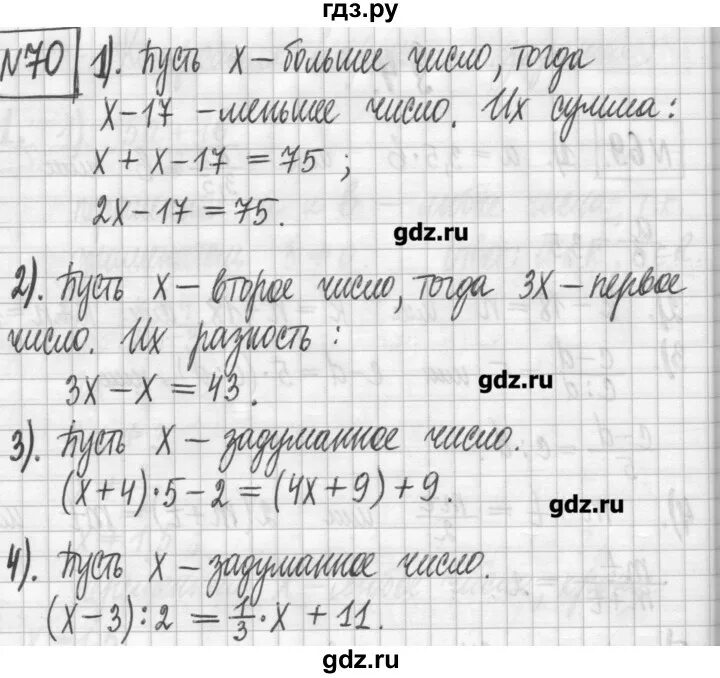 гдз.ру
№70 1). Пусть x – большее число, тогда
x – 17 – меньшее число. Их сумма:
x + x – 17 = 75 ;
2x – 17 = 75.
gdz.ru
2). Пусть x – второе число, тогда 3x – первое
число. Их разность :
3x – x = 43 .
gdz.ru
3). Пусть x – задуманное число.
(x + 4) · 5 – 2 = (4x + 9) + 9 .
gdz.ru
4). Пусть x – задуманное число.
(x – 3) : 2 = 1/3 · x + 11.
gdz.ru